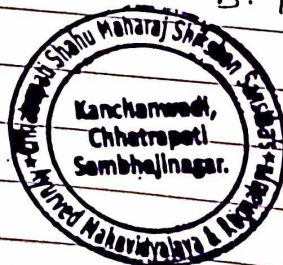 Chhatrapati Shahu Maharaj Shikshan Sanstha's
Kanchanwadi,
Chhatrapati
Sambhajinagar.
★ Ayurved Mahavidyalaya & Rugnalaya ★